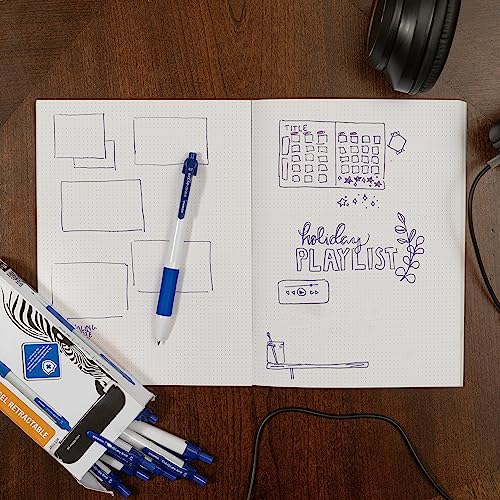 TITLE
holiday
PLAYLIST
GEL RETRACTABLE